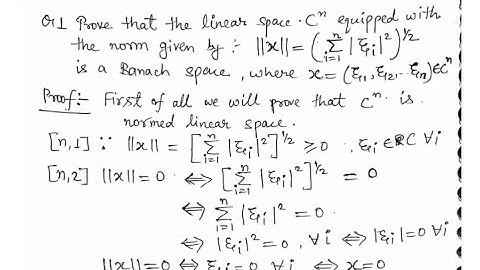 Q.1 Prove that the linear space Cⁿ equipped with
the norm given by :- ||x|| = (∑ᵢ₌₁ⁿ |ξᵢ|²)^{1/2}
is a Banach space, where x = (ξ₁, ξ₂, ... ξₙ) ∈ Cⁿ
Proof:- First of all we will prove that Cⁿ is
normed linear space.
[n,1] ∵ ||x|| = [∑ᵢ₌₁ⁿ |ξᵢ|²]^{1/2} ≥ 0, ξᵢ ∈ C ∀i
[n,2] ||x|| = 0 ⇔ [∑ᵢ₌₁ⁿ |ξᵢ|²]^{1/2} = 0
⇔ ∑ᵢ₌₁ⁿ |ξᵢ|² = 0
⇔ |ξᵢ|² = 0, ∀i ⇔ |ξᵢ| = 0 ∀i
||x|| = 0 ⇔ ξᵢ = 0 ∀i ⇔ x = 0